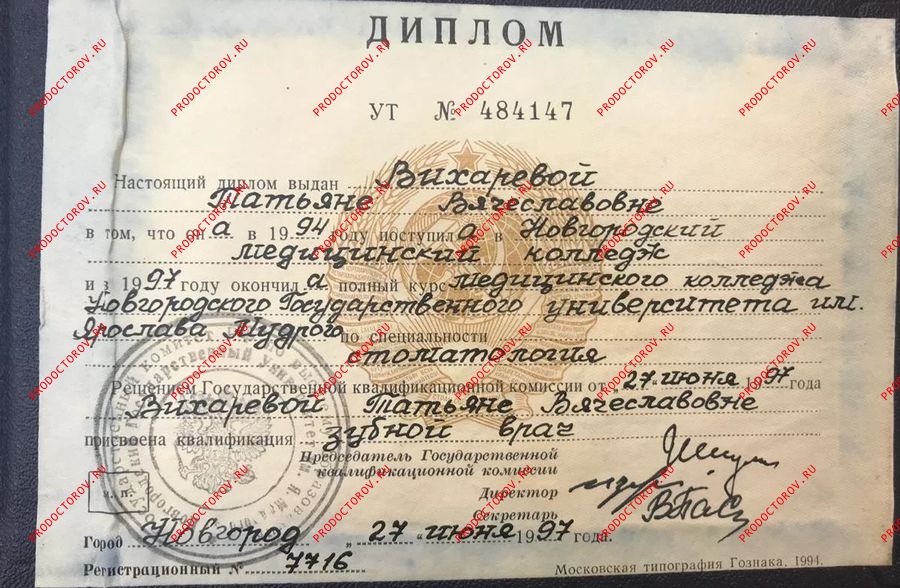 ДИПЛОМ
УТ № 484147
Настоящий диплом выдан Вихаревой
Татьяне Вячеславовне
в том, что она в 1994 году поступила в Новгородский
медицинский колледж
и в 1997 году окончила полный курс медицинского колледжа
Новгородского Государственного университета им.
Ярослава Мудрого по специальности
стоматология
Решением Государственной квалификационной комиссии от 27 июня 1997 года
Вихаревой Татьяне Вячеславовне
присвоена квалификация зубной врач
Председатель Государственной
квалификационной комиссии
Директор
Секретарь
М. П.
Город Новгород „27“ июня 1997 года.
Регистрационный № 7716
Московская типография Гознака, 1994.
PRODOCTOROV.RU